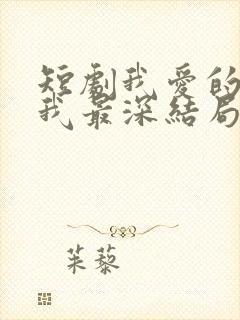 短劇我愛的
我最深結局
茱藜